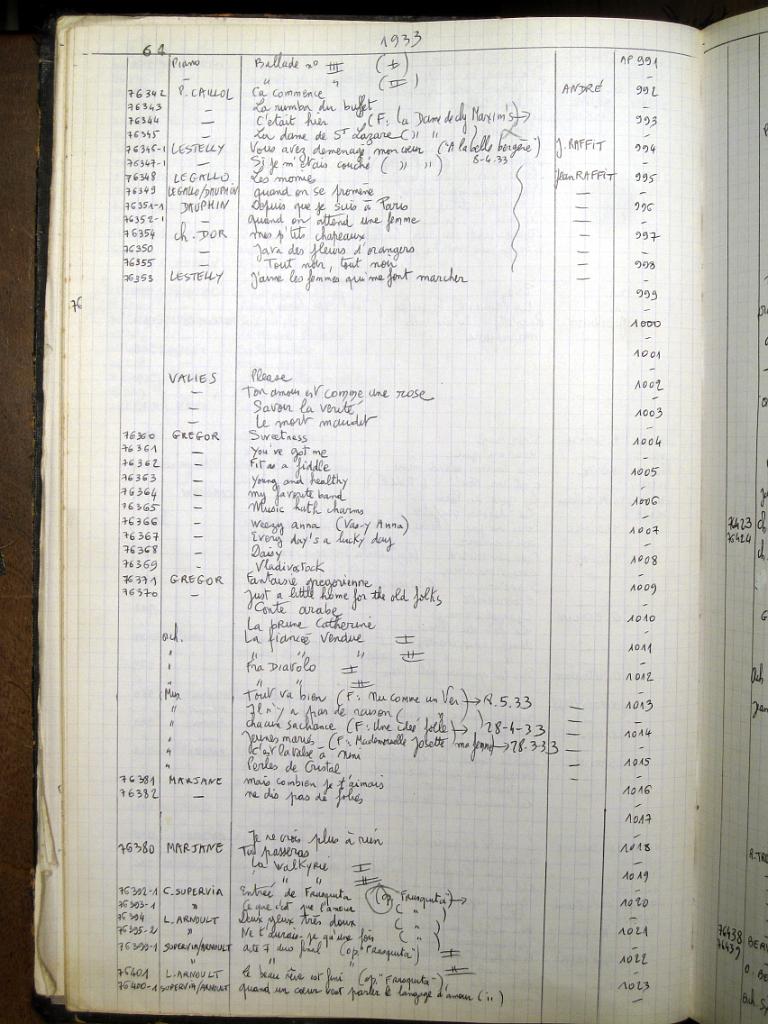 64 1933
Piano Ballade n° III (I) AP 991
— " " (II) —
76342 P. CAILLOL Ca commence ANDRÉ 992
76343 — La rumba du buffet —
76344 — C'était hier (F: La Dame de chez Maxim's) → 993
76345 — La dame de St Lazare ( " " ) —
76346-1 LESTELLY Vous avez déménagé mon cœur ("A la belle bergère") J. RAFFIT 994
76347-1 — Si je m'étais couché ( " " ) 8-4.33 —
76348 LE GALLO Les momies Jean RAFFIT 995
76349 LE GALLO/DAUPHIN quand on se promène — —
76351-1 DAUPHIN Depuis que je suis à Paris — 996
76352-1 — quand on attend une femme — —
76354 Ch. DOR mes p'tits chapeaux — 997
76350 — Java des fleurs d'orangers — —
76355 — Tout noir, tout noir — 998
76353 LESTELLY J'aime les femmes qui me font marcher — —
999
76 —
1000
—
1001
—
VALIES Please 1002
— Ton amour est comme une rose —
— Savoir la vérité 1003
— Le mort maudit —
76360 GREGOR Sweetness 1004
76361 — You've got me —
76362 — Fit as a fiddle 1005
76363 — Young and healthy —
76364 — my favorite band 1006
76365 — Music hath charms —
76366 — Weezy anna (Vas-y Anna) 1007
76367 — Every day's a lucky day —
76368 — Daisy 1008
76369 — Vladivostock —
76371 GREGOR Fantaisie gregorienne 1009
76370 — Just a little home for the old folks —
Conte arabe 1010
La prune Catherine —
och. La fiancée vendue I 1011
" " " II —
" Fra DIAVOLO I 1012
" " " II —
Mus. Tout va bien (F: Nu comme un Ver) → R.5.33 1013
" Il n'y a pas de raison ( ) — —
" chacun sa chance (F: Une idée folle) → 28-4-33 — 1014
" Jeunes mariés (F: Mademoiselle Josette ma femme) → 28-3-33 — —
" C'est la valse à Nini — 1015
" Perles de Cristal — —
76381 MARJANE mais combien je t'aimais 1016
76382 — ne dis pas de folies —
1017
Je ne crois plus à rien —
76380 MARJANE Tu passeras 1018
La Walkyrie I —
" " II 1019
76392-1 C. SUPERVIA Entrée de Frasquita (op. Frasquita) → —
76393-1 " Ce que c'est que l'amour ( " ) 1020
76394 L. ARNOULT Deux yeux très doux ( " ) —
76395-2 " Ne t'aurais-je qu'une fois ( " ) 1021
76399-1 SUPERVIA/ARNOULT acte 7 duo final (op. "Frasquita") I —
" II 1022
76401 L. ARNOULT Le beau rêve est fini (op. "Frasquita") —
76400-1 SUPERVIA/ARNOULT quand un cœur veut parler le langage d'amour ( " ) 1023
—
76423 ch
76424
ch.
76438 BERV
76439